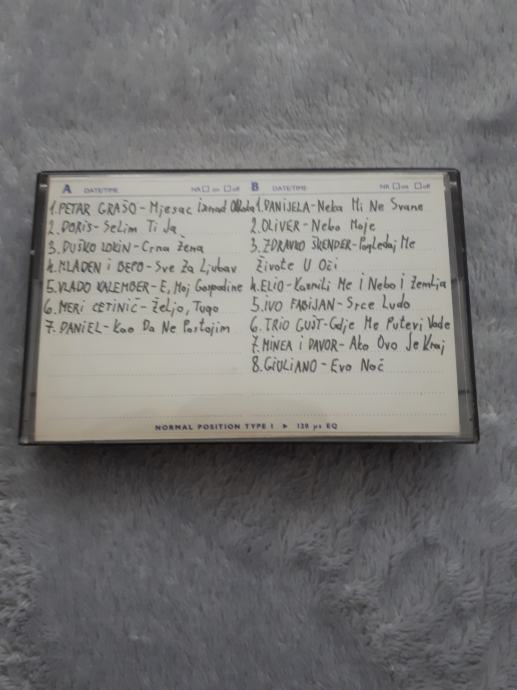 A DATE/TIME NR on off
1. PETAR GRAŠO - Mjesec iznad Oblaka
2. DORIS - Selim Ti Ja
3. DUŠKO LOKIN - Crna Žena
4. MLADEN i BEPO - Sve Za Ljubav
5. VLADO KALEMBER - E, Moj Gospodine
6. MERI CETINIĆ - Željo, Tugo
7. DANIEL - Kao Da Ne Postojim
B DATE/TIME NR on off
1. DANIJELA - Neka Mi Ne Svane
2. OLIVER - Nebo Moje
3. ZDRAVKO ŠKENDER - Pogledaj Me
Živote U Oči
4. ELIO - Kaznili Me i Nebo i Zemlja
5. IVO FABIJAN - Srce Ludo
6. TRIO GUŠT - Gdje Me Putevi Vode
7. MINEA i DAVOR - Ako Ovo Je Kraj
8. GIULIANO - Evo Noć
NORMAL POSITION TYPE I ► 120 µs EQ